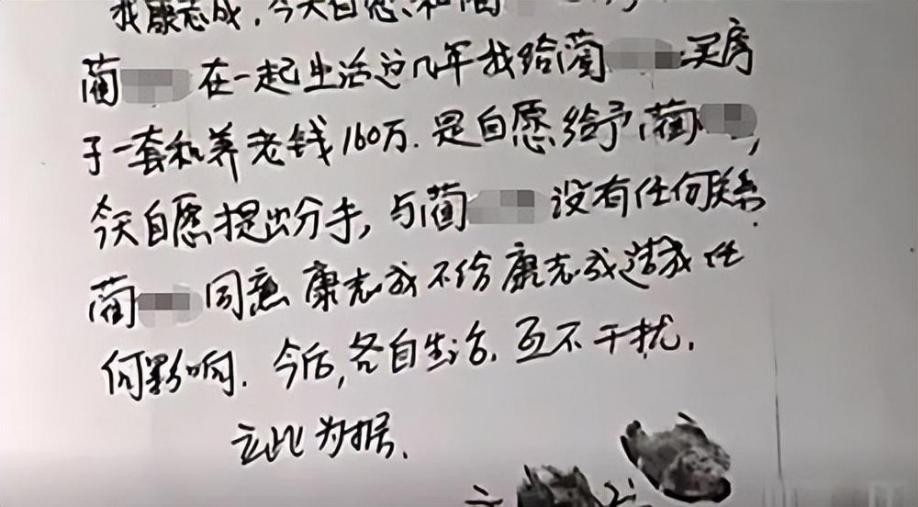 我康志成,今天自愿、和蔺
蔺 在一起生活这几年我给蔺 买房
子一套和养老钱160万.是自愿给予蔺 ,
今天自愿提出分手,与蔺 没有任何关系.
蔺 同意康志成不给康志成造成任
何影响.今后,各自生活.互不干扰.
立此为据.